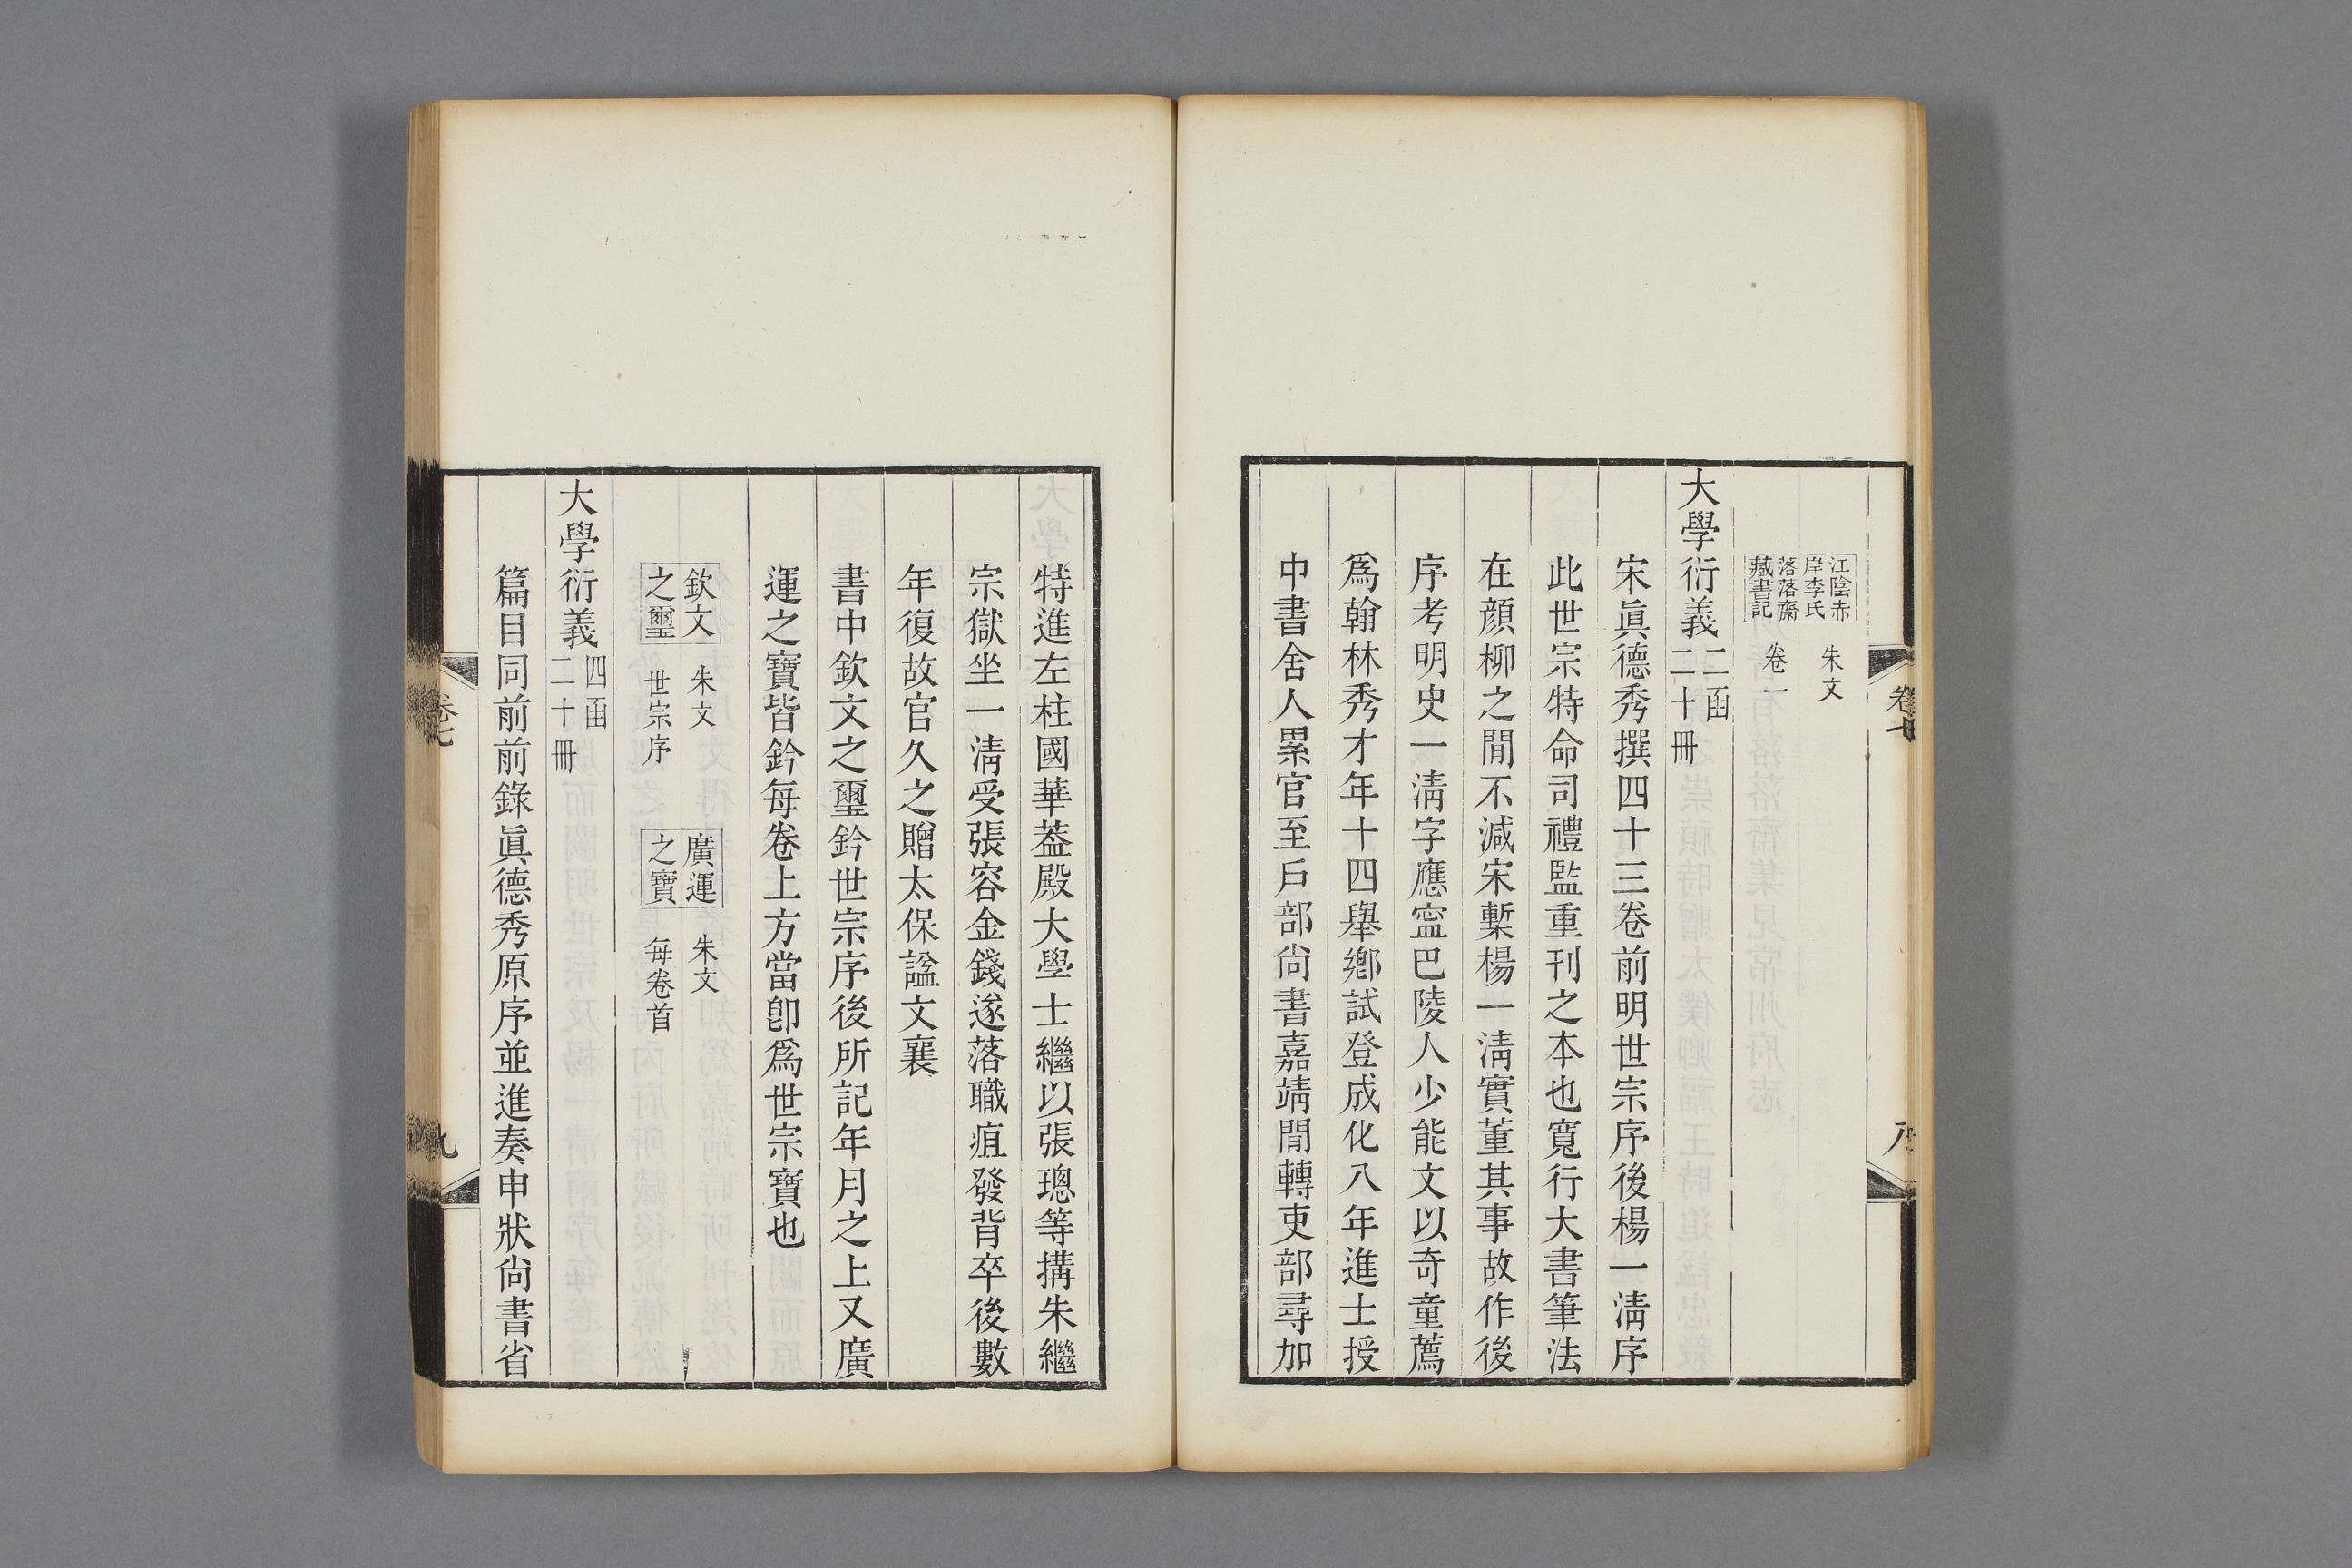 卷七
八
江陰赤
岸李氏
落落齋
藏書記
朱文
卷一
大學衍義
二函
二十冊
宋眞德秀撰四十三卷前明世宗序後楊一淸序
此世宗特命司禮監重刊之本也寬行大書筆法
在顔柳之閒不減宋槧楊一淸實董其事故作後
序考明史一淸字應寍巴陵人少能文以奇童薦
爲翰林秀才年十四舉鄕試登成化八年進士授
中書舍人累官至戶部尙書嘉靖閒轉吏部尋加
特進左柱國華葢殿大學士繼以張璁等搆朱繼
宗獄坐一淸受張容金錢遂落職疽發背卒後數
年復故官久之贈太保諡文襄
書中欽文之璽鈐世宗序後所記年月之上又廣
運之寶皆鈐每卷上方當卽爲世宗寶也
欽文
之璽
朱文
世宗序
廣運
之寶
朱文
每卷首
大學衍義
四函
二十冊
篇目同前前錄眞德秀原序並進奏申狀尙書省
卷七
九